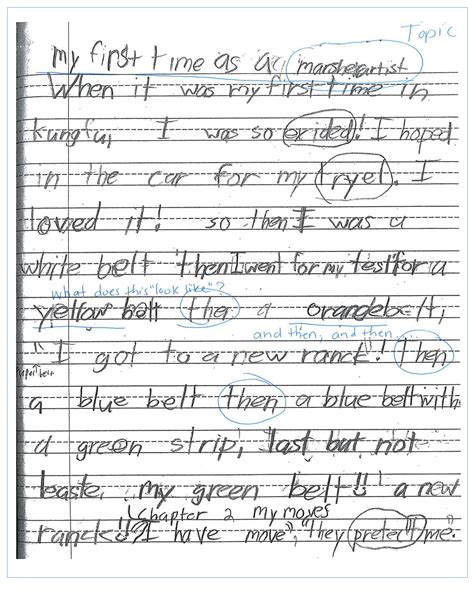 Topic
my first time as a marshel artist
When it was my first time in
kungfu, I was so exided! I hoped
in the car for my tryel. I
loved it! so then I was a
white belt then I went for my test for a
what does this "look like"?
yellow belt then a orange belt,
and then, and then...
"I got to a new ranck"! then
a blue belt then a blue belt with
a green strip, last but not
leaste my green belt!! a new
Chapter 2 my moves
ranck!!? I have move", "they pretect me.